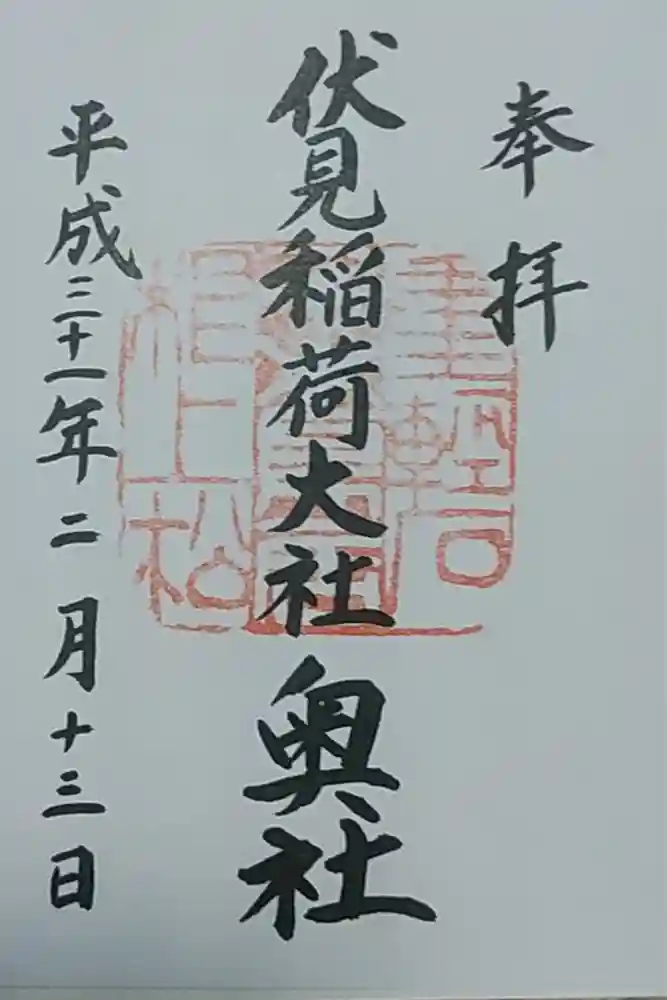 奉拝
伏見稲荷大社奥社
平成三十一年二月十三日